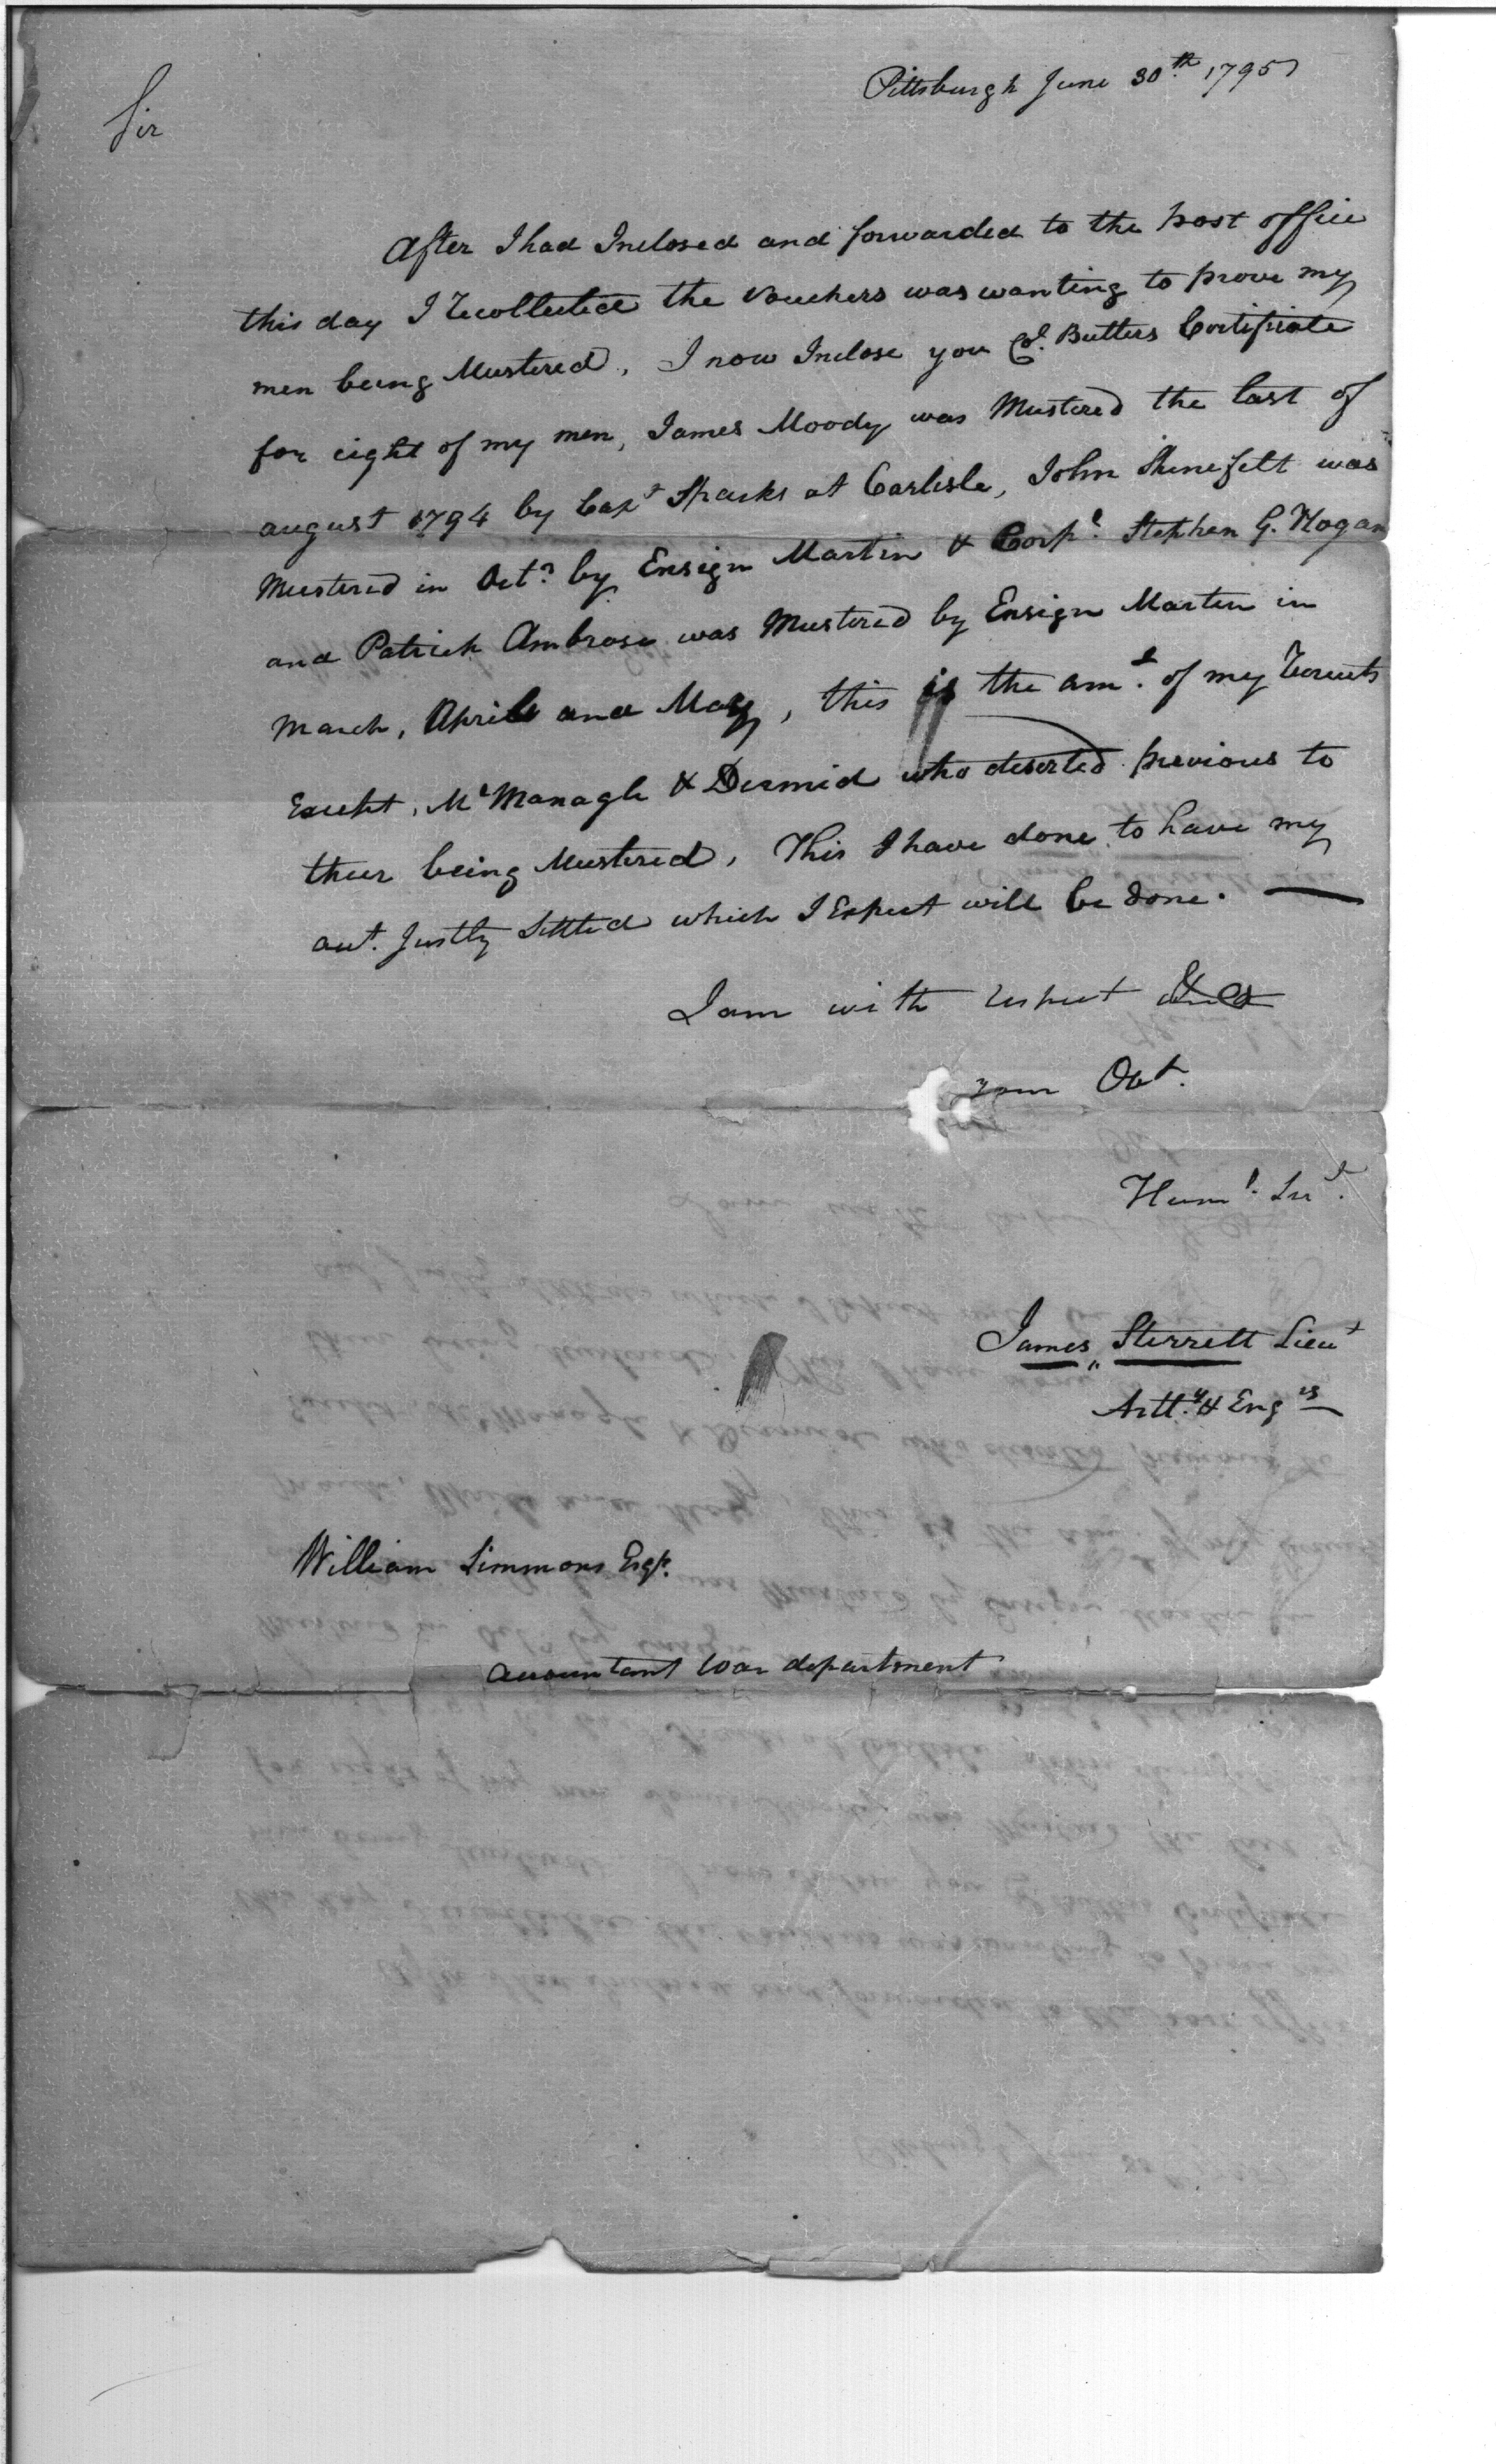 Pittsburgh June 30th 1795
Sir
After I had Inclosed and forwarded to the post office
this day I Recollected the Vouchers was wanting to prove my
men being Mustered, I now Inclose you Col. Butlers Certificate
for eight of my men, James Moody was Mustered the last of
august 1794 by Capt Sparks at Carlisle, John Shinefelt was
Mustered in Octr by Ensign Martin & Corpl. Stephen G. Hogan
and Patrick Ambrose was Mustered by Ensign Martin in
March, April and May, this is the amt. of my Recruits
Except, McManagle & Dermid who deserted previous to
their being Mustered, This I have done to have my
act. Justly Settled which I Expect will be done. —
I am with respect &ca
your Obt.
Huml. Sert.
James Sterrett Lieut
Artly. & Engrs
William Simmons Esqr.
accountant War department